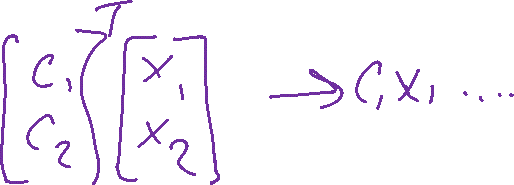 [c₁ c₂]ᵀ [x₁ x₂] → c₁x₁ ....